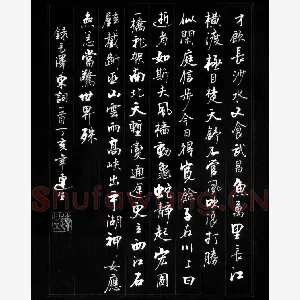 才飲長沙水又食武昌魚萬里長江
橫渡極目楚天舒不管風吹浪打勝
似閒庭信步今日得寬餘子在川上曰
逝者如斯夫風檣動龜蛇靜起宏圖
一橋飛架南北天塹變通途更立西江石
壁截斷巫山雲雨高峽出平湖神女應
無恙當驚世界殊
錄毛澤東詞一首丁亥年建
Shufawang.CN